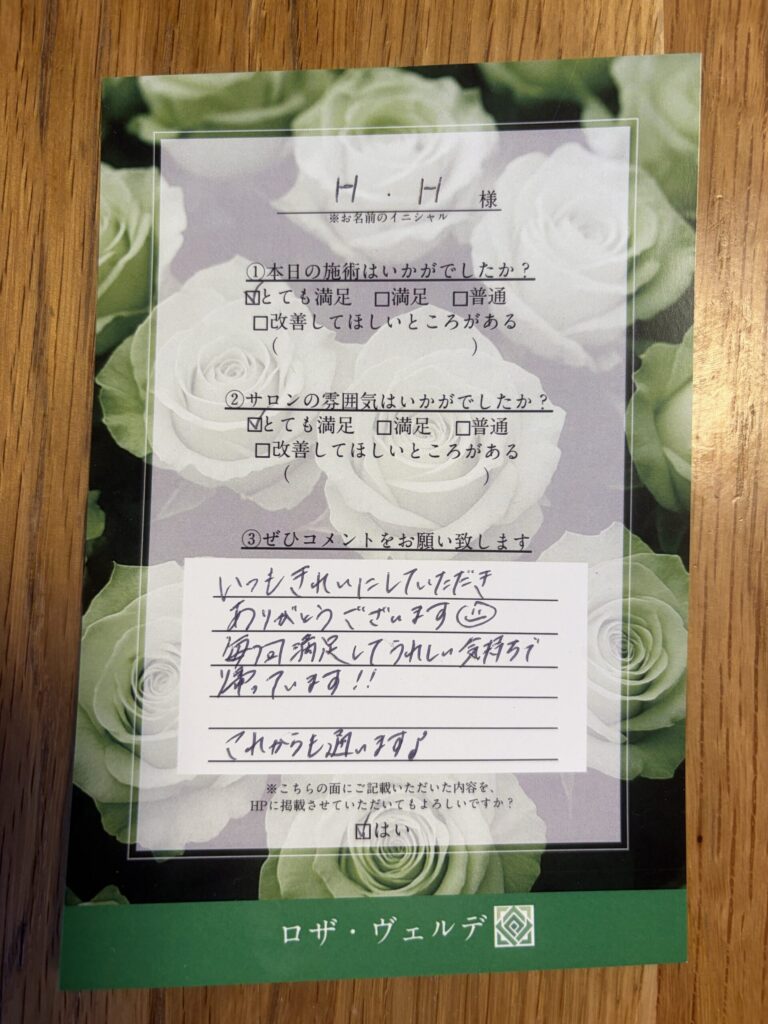 H・H 様
※お名前のイニシャル
①本日の施術はいかがでしたか？
☑とても満足 □満足 □普通
□改善してほしいところがある
(　　　　　　　　　　)
②サロンの雰囲気はいかがでしたか？
☑とても満足 □満足 □普通
□改善してほしいところがある
(　　　　　　　　　　)
③ぜひコメントをお願い致します
いつもきれいにしていただき
ありがとうございます☺
毎回満足してうれしい気持ちで
帰っています!!
これからも通います♪
※こちらの面にご記載いただいた内容を、
HPに掲載させていただいてもよろしいですか？
☑はい
ロザ・ヴェルデ